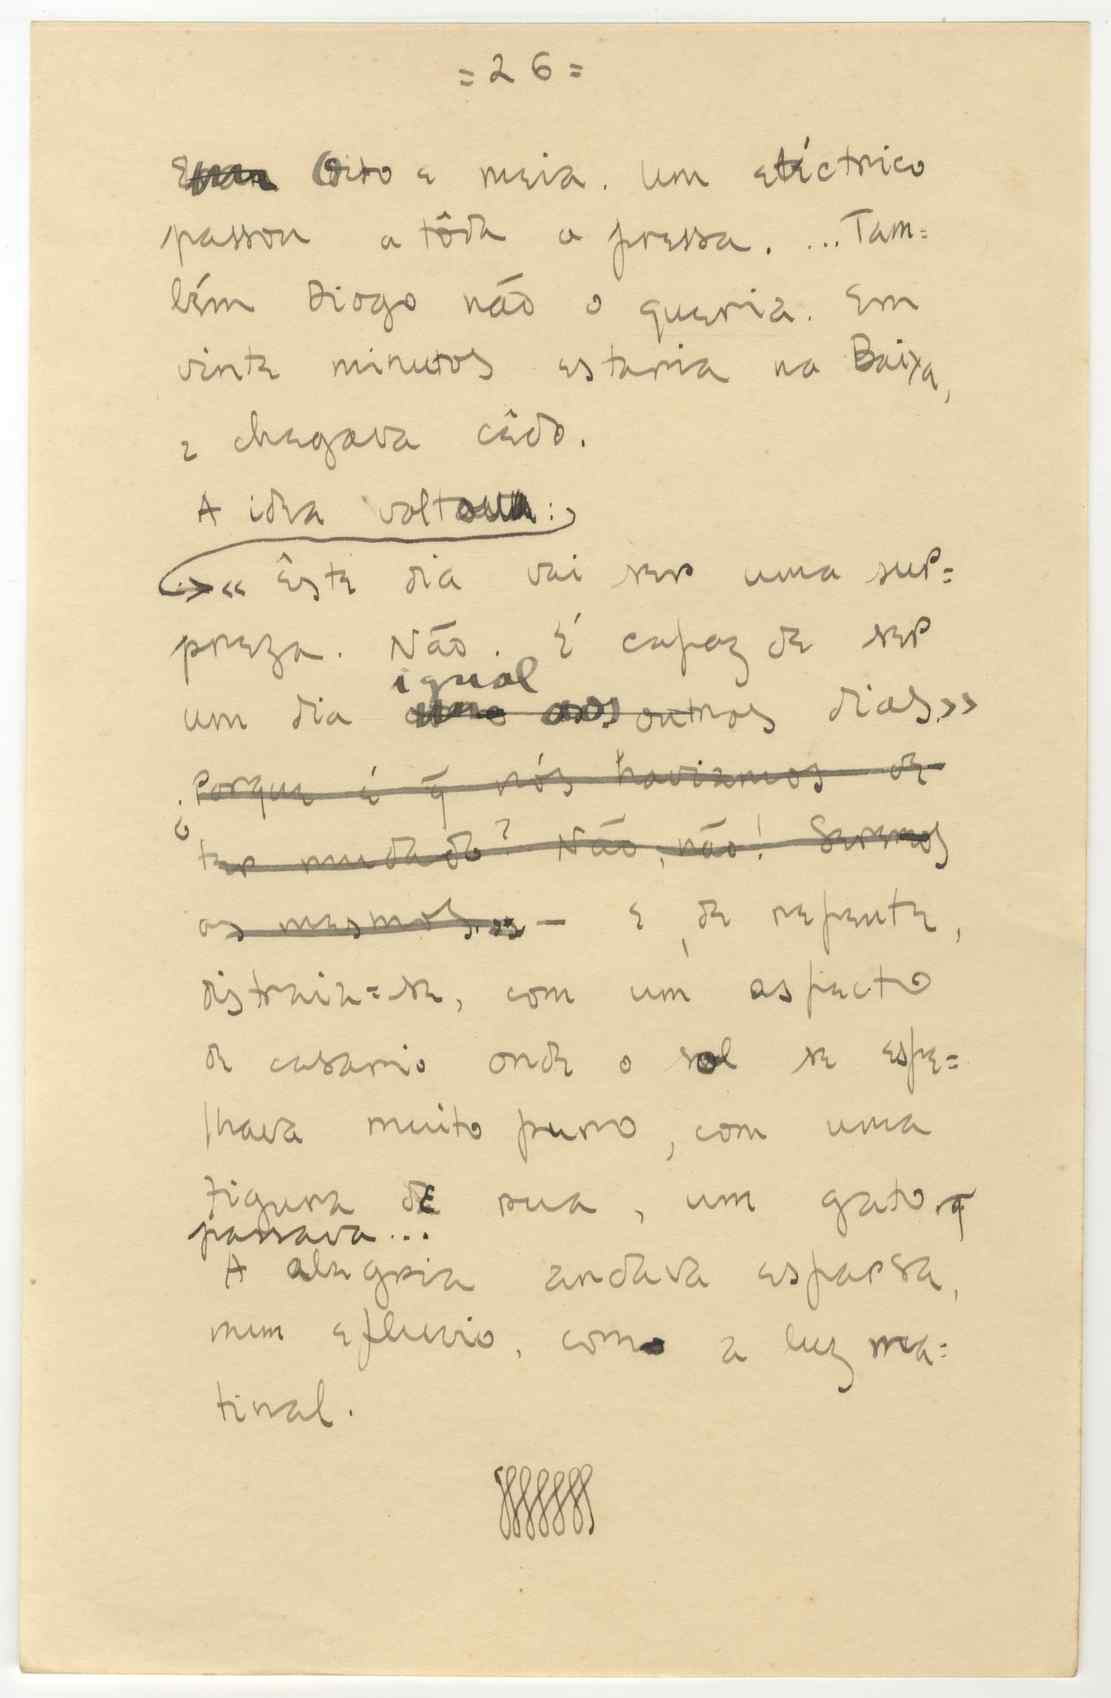 =26=
Oito e meia. Um eléctrico
passou a tôda a pressa. ...Tam=
bém Diogo não o queria. Em
vinte minutos estaria na Baixa,
e chegava cêdo.
A idea voltou:
«Êste dia vai ser uma sur=
preza. Não. É capaz de ser
igual
um dia aos outros dias.»
Porque é q̃ nós haviamos de
ter mudado? Não, não! Seremos
os mesmos.» — E, de repente,
distraia=se, com um aspecto
de casario onde o sol se espe=
lhava muito puro, com uma
figura de rua, um gato q̃
passava...
A alegria andava esparsa,
num efluvio, como a luz ma=
tinal.